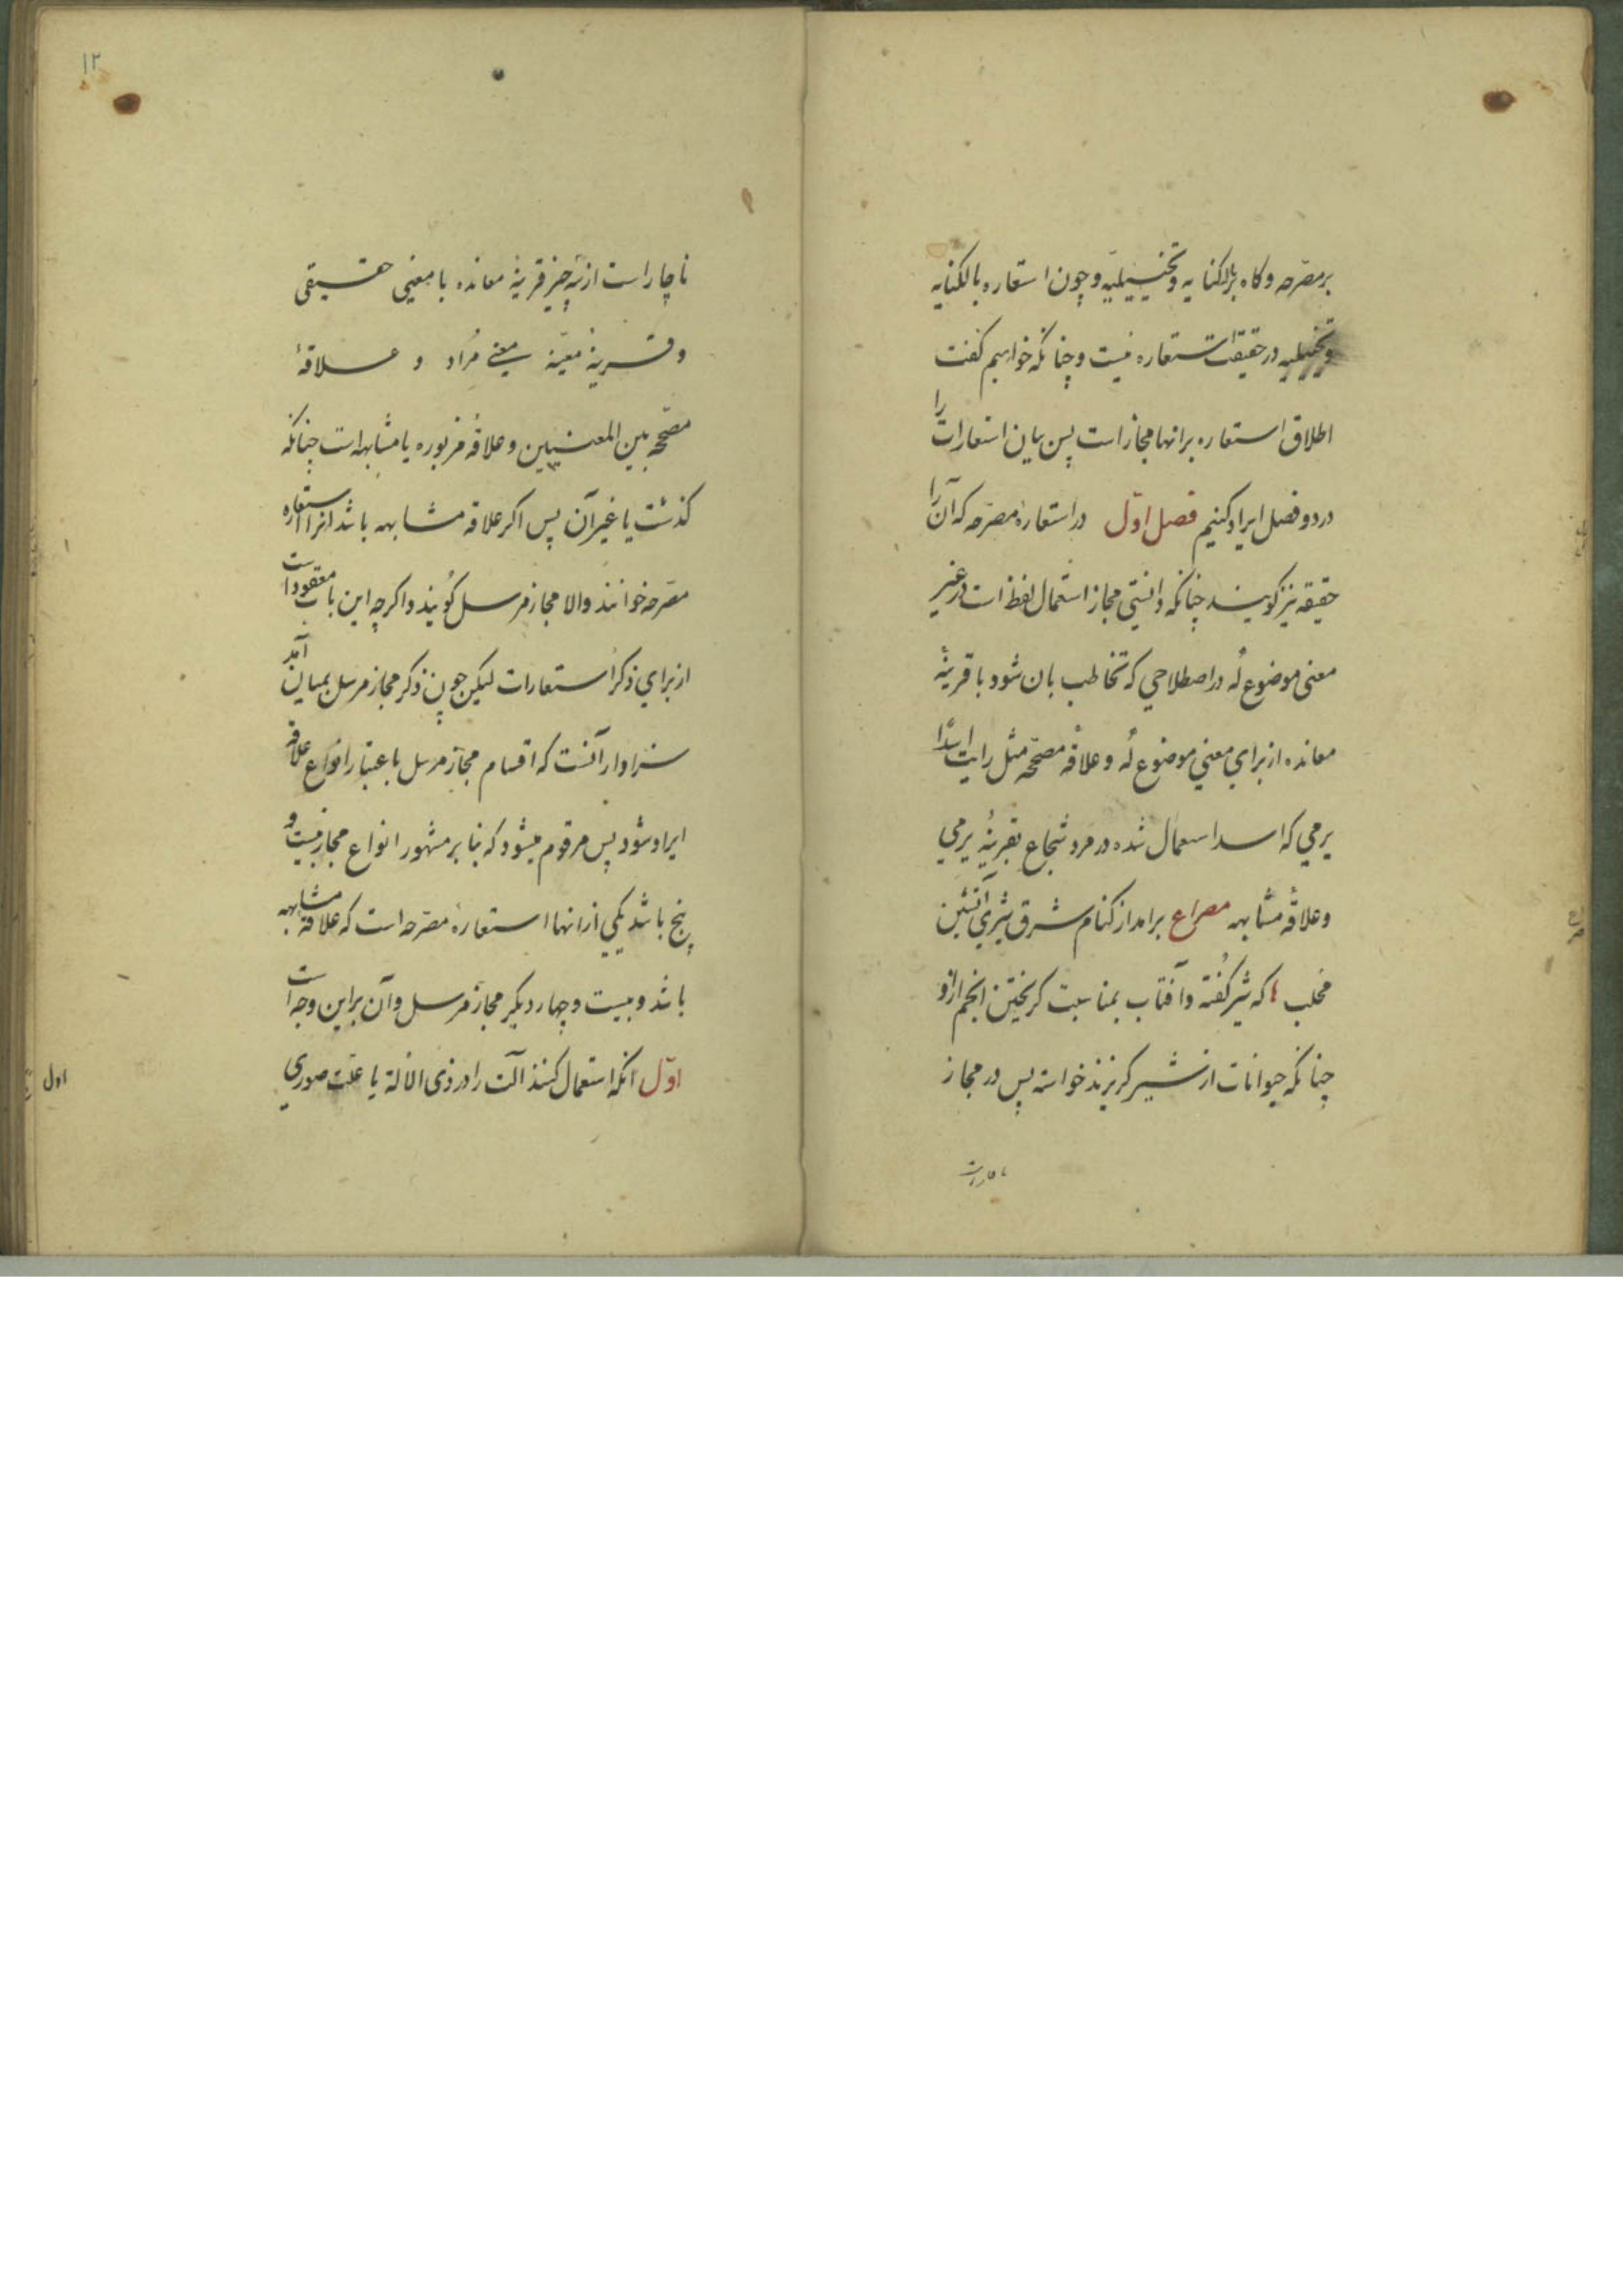 بر مصرّحه وکاه بر بالکنایه وتخییلیّه وچون استعاره بالکنایه
وتخییلیه در حقیقت استعاره نیست وچنانکه خواهیم کفت
اطلاق استعاره برانها مجاز است پس بیان استعارات را
در دو فصل ایراد کنیم فصل اوّل در استعارهٔ مصرّحه که آن را
حقیقه نیز کویند چنانکه دانستی مجاز استعمال لفظ است در غیر
معنی موضوع لُه در اصطلاحی که تخاطب بان شود با قرینهٔ
معانده از برای معنی موضوع لُه وعلاقهٔ مصحّحه مثل رایت اسدًا
یرمی که اسد استعمال شده در مرد شجاع بقرینهٔ یرمی
وعلاقهٔ مشابهه مصراع برامد از کنام شرق شیری آتشین
مخلب که شیر کُفته وآفتاب بمناسبت کریختن انجم ازو
چنانکه حیوانات از شیر کریزند خواسته پس در مجاز
۱۲
ناچار است از سه چیز قرینهٔ معانده با معنی حقیقی
وقرینهٔ معیّنه معنی مُراد و علاقهٔ
مصحّحه بین المعنیین وعلاقهٔ مزبوره یا مشابهه است چنانکه
کذشت یا غیر آن پس اکر علاقه مشابهه باشد انرا استعاره
مصرّحه خوانند والا مجاز مرسل کُویند واکرچه این باب معقود است
از برای ذکر استعارات لیکن چون ذکر مجاز مرسل بمیان آمد
سزاوار آنست که اقسام مجاز مرسل باعتبار انواع علاقه
ایراد شود پس مرقوم میشود که بنابر مشهور انواع مجاز بیست و
پنج باشد یکی ازانها استعارهٔ مصرّحه است که علاقهٔ مشابهه
باشد وبیست وچهار دیکر مجاز مرسل وآن براین وجه است
اوّل انکه استعمال کنند آلت را در ذی الالة یا علت صوری
اول